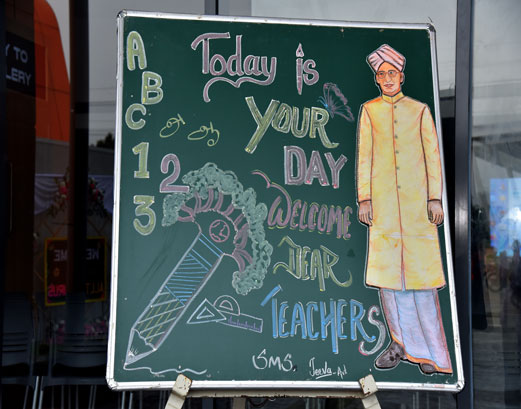 Y TO
LLERY
A
B
C
அ ஆ
1
2
3
Today is
YOUR
DAY
WELCOME
DEAR
TEACHERS
SMS.
Jeeva. Art